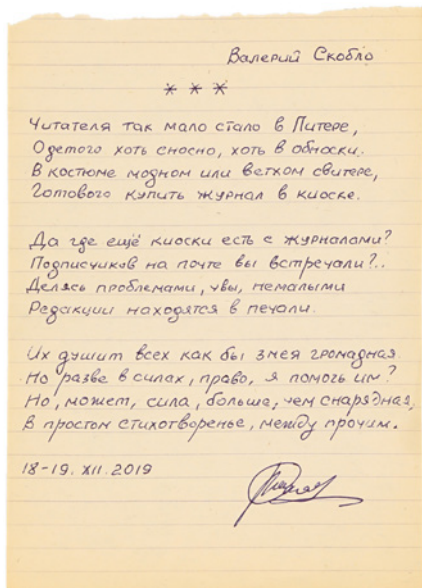 Валерий Скобло
* * *
Читателя так мало стало в Питере,
Одетого хоть сносно, хоть в обноски.
В костюме модном или ветхом свитере,
Готового купить журнал в киоске.
Да где ещё киоски есть с журналами?
Подписчиков на почте вы встречали?..
Делясь проблемами, увы, немалыми
Редакции находятся в печали.
Их душит всех как бы змея громадная.
Но разве в силах, право, я помочь им?
Но, может, сила, больше, чем снарядная,
В простом стихотворенье, между прочим.
18-19. XII. 2019